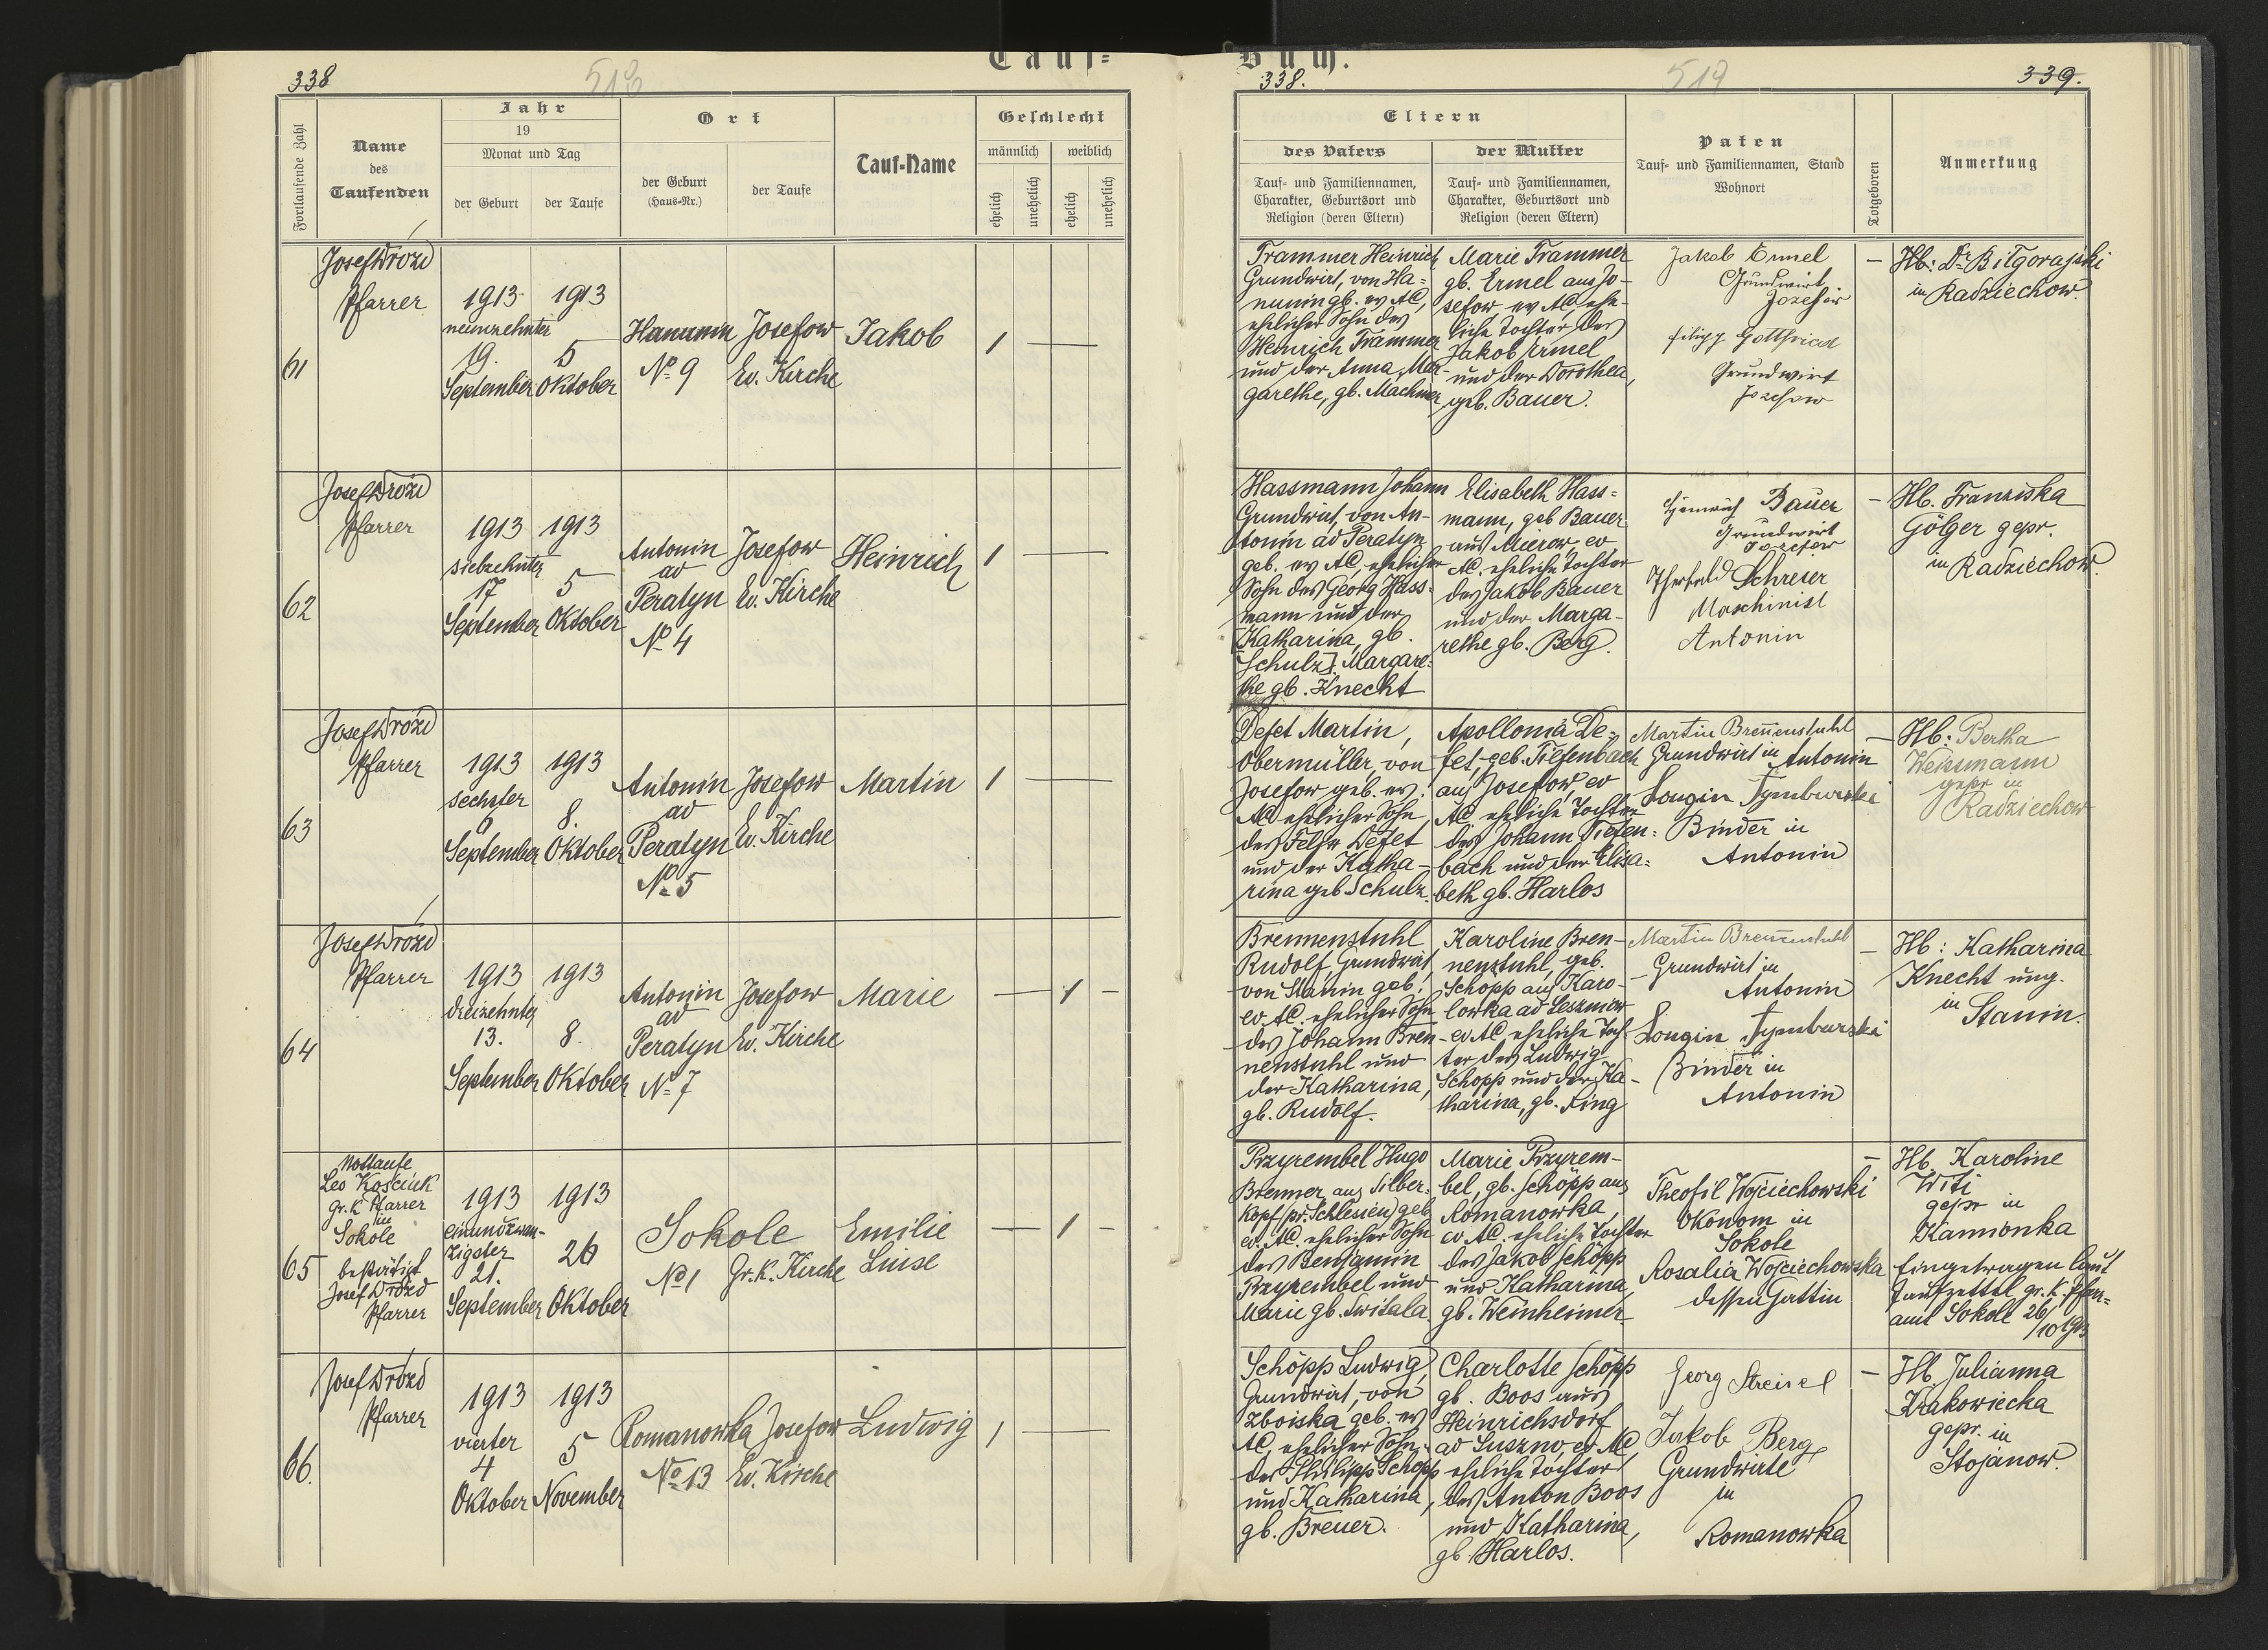 338
518
Tauf=
Fortlaufende Zahl
Name
des
Taufenden
Jahr
19
Monat und Tag
der Geburt
der Taufe
Ort
der Geburt
(Haus=Nr.)
der Taufe
Tauf=Name
Geschlecht
männlich
weiblich
ehelich
unehelich
ehelich
unehelich
61
Josef Drozd
Pfarrer
1913
neunzehnter
19.
September
1913
5
Oktober
Hanunin
No 9
Josefow
Ev. Kirche
Jakob
1
62
Josef Drozd
Pfarrer
1913
siebzehnter
17
September
1913
5
Oktober
Antonin
ad
Peratyn
No 4
Josefow
Ev. Kirche
Heinrich
1
63
Josef Drozd
Pfarrer
1913
sechster
6
September
1913
8.
Oktober
Antonin
ad
Peratyn
No 5
Josefow
Ev. Kirche
Martin
1
64
Josef Drozd
Pfarrer
1913
dreizehnter
13.
September
1913
8.
Oktober
Antonin
ad
Peratyn
No 7
Josefow
Ev. Kirche
Marie
1
65
Nottaufe
Leo Kościuk
gr. K. Pfarrer
in
Sokole
bestätigt
Josef Drozd
Pfarrer
1913
einundzwan-
zigster
21.
September
1913
26
Oktober
Sokole
No 1
Gr. K. Kirche
Emilie
Luise
1
66.
Josef Drozd
Pfarrer
1913
vierter
4
Oktober
1913
5
November
Romanowka
No 13
Josefow
Ev. Kirche
Ludwig
1
Buch.
338.
519
339.
Eltern
des Vaters
Tauf= und Familiennamen,
Charakter, Geburtsort und
Religion (deren Eltern)
der Mutter
Tauf= und Familiennamen,
Charakter, Geburtsort und
Religion (deren Eltern)
Paten
Tauf= und Familiennamen, Stand
Wohnort
Totgeboren
Anmerkung
Trammer Heinrich
Grundwirt, von Ha=
nunin gb. ev AC,
ehelicher Sohn des
Heinrich Trammer
und der Anna Mar-
garethe, gb. Machmer
Marie Trammer
gb. Ermel aus Jo-
sefow ev AC, ehe-
liche Tochter des
Jakob Ermel
und der Dorothea,
geb. Bauer.
Jakob Ermel
Grundwirt
Josefow
Filipp Gottfried
Grundwirt
Josefow
Hb: Dr Biłgorajski
in Radziechow.
Hassmann Johann
Grundwirt, von An-
tonin ad Peratyn
geb. ev AC, ehelicher
Sohn des Georg Hass=
mann und der
[Katharina, gb.
Schulz] Margare=
the gb. Knecht
Elisabeth Hass=
mann, geb Bauer
aus Mierow ev
AC. eheliche Tochter
des Jakob Bauer
und der Marga-
rethe gb. Berg.
Heinrich Bauer
Grundwirt
Josefow
Schreier
Maschinist
Antonin
Hb. Franziska
Gölger gepr.
in Radziechow.
Defet Martin,
Obermüller, von
Josefow geb. ev.
AC ehelicher Sohn
des Defet
und der Katha-
rina geb Schulz.
Apollonia De=
fet, geb. Tiefenbach
aus Josefow, ev
AC eheliche Tochter
des Johann Tiefen=
bach und der Elisa=
beth gb. Harlos
Martin Brennenstuhl
Grundwirt in Antonin
Longin Tymburski
Binder in
Antonin
Hb: Bertha
Weissmann
gepr in
Radziechow
Brennenstuhl
Rudolf, Grundwirt,
von Stanin geb.
ev. AC. ehelicher Sohn
des Johann Bren-
nenstuhl und
der Katharina,
gb. Rudolf.
Karoline Bren-
nenstuhl, geb.
Schöpp aus Karo-
lowka ad Leszniow
ev AC eheliche Toch-
ter des Ludwig
Schopp und der Ka-
tharina, gb. Fing
Martin Brennenstuhl
Grundwirt in
Antonin
Longin Tymburski
Binder in
Antonin
Hb: Katharina
Knecht ung.
in Stanin.
Przyrembel Hugo
Brenner aus Silber=
kopf (pr. Schlesien) geb
ev. AC. ehelicher Sohn
des Benjamin
Przyrembel und
Marie gb. Switala
Marie Przyrem-
bel, gb. Schöpp aus
Romanowka,
ev. AC. eheliche Tochter
des Jakob Schöpp
und Katharina,
gb. Weinheimer
Theofil Wojciechowski
Okonom in
Sokole
Rosalia Wojciechowska
dessen Gattin
Hb. Karoline
Witi
gepr in
Kamionka
Eingetragen laut
Taufzettel gr. K. Pfarr=
amt Sokole 26/10 1913
Schöpp Ludwig,
Grundwirt, von
Zboiska geb. ev
AC, ehelicher Sohn
des Philipp Schopp
und Katharina,
gb. Breuer.
Charlotte Schöpp
gb. Boos aus
Heinrichsdorf
ad Suszno, ev AC
eheliche Tochter
des Anton Boos
und Katharina,
gb Harlos.
Georg Streisel
Jakob Berg
Grundwirte
in
Romanowka
Hb. Julianna
Krakowiecka
gepr. in
Stojanow.